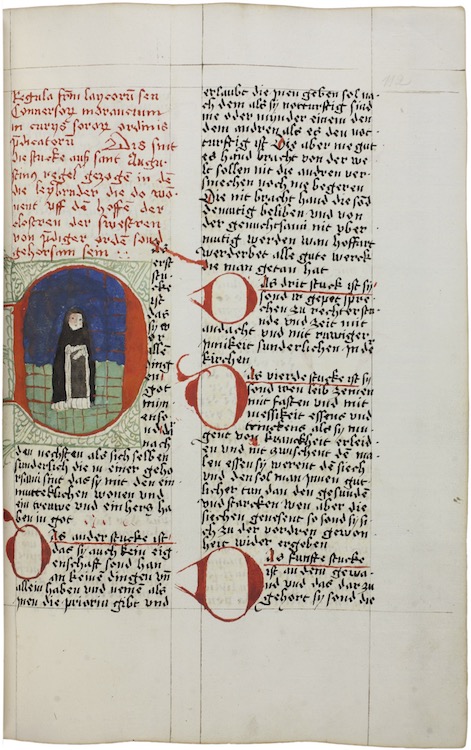 Regula frm laycorū seu
Conversorū morantium
in curijs sororū ordinis
p̄dicatorū Dis sint
die stucke auß sant Augu-
stinus regel gezogē in dē
die leybrüder die do wō-
nent vff dē höffen der
clostren der swestren
von p̄diger ordē sond
gehorsam sein
Das
erst
stu-
cke
ist
das
alle
ding
got
mīn
und
nach
den nechsten als sich selben
sunderlich die in einer geho
rsami sint das sy mit den ein
mutteklichen wonen und
ein trewe und ein hercz ha
ben in got
Das ander stucke ist
das sy auch kein eig
enschafft sond han
an keine dingen vn̄
allein haben und neme als
inen die priorin gibt und
erlaubt die inen geben sol na-
ch dem als sy notturftig sind
me oder mynder einem den
dem andren als es den not-
turftig ist Die aber me gut
es hand bracht von der we
lt sollen nit die andren ver-
smechen noch me begeren
Die nit bracht hand die sond
demutig beliben und von
der gemeinsami nit vber
mutig werden wan hoffart
verderbet alle gute werck
die man getan hat
Das drit stuck ist sy
sond ir gepot spre
chen zu rechter stu-
nde und zeit mit
andacht und mit ruwiger
innikeit sunderlichen in de
kirchen
Das vierde stucke ist sy
sond iren leib zemen
mit fasten und mit
messikeit essens und
trinckens als sy mu
gent vor kranckheit erleid-
en und nit zwuschent dē m-
alen essen sy werent dē siech
und den sol man innen gut-
licher tun dan den gesunden
und starcken wen aber die
siechen genesent so sond sy si
ch zu der vordren gewon
heit wider ergeben
Das funfte stucke
ist an dem gewa-
nd und das dar zu
gehort sy sond die